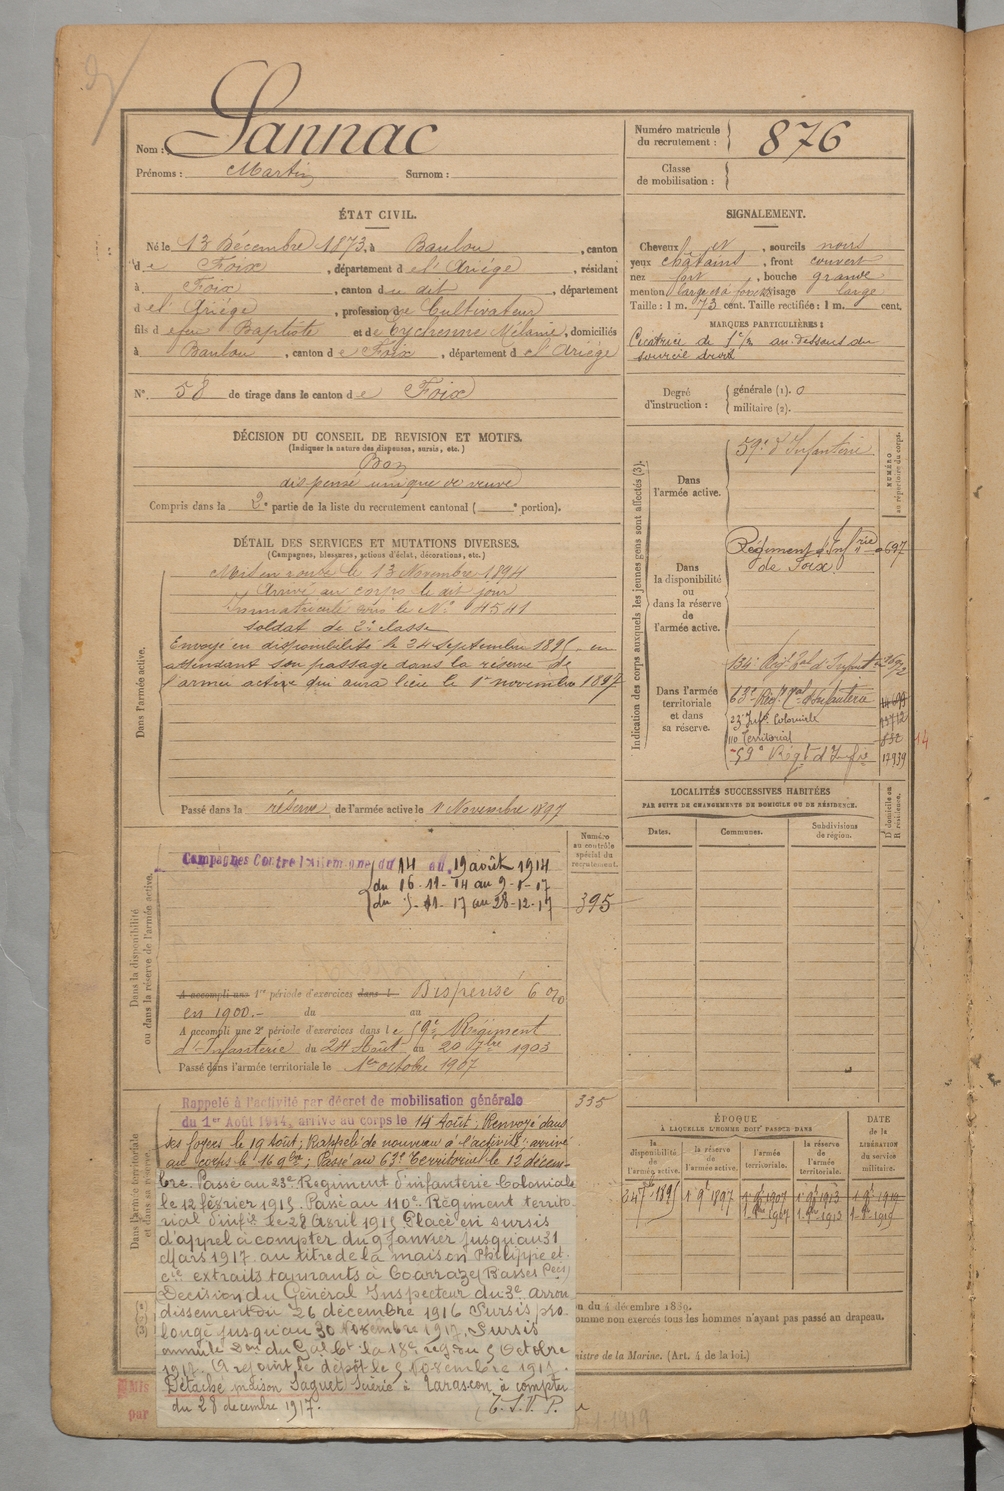 Nom : Sannac
Prénoms : Martin Surnom :
Numéro matricule du recrutement : 876
Classe de mobilisation :
ÉTAT CIVIL.
Né le 13 Décembre 1873, à Baulou, canton
de Foix, département de l'Ariége, résidant
à Foix, canton du dit, département
de l'Ariége, profession de Cultivateur
fils de feu Baptiste et de Eychenne Mélanie, domiciliés
à Baulou, canton de Foix, département de l'Ariége
N° 58 de tirage dans le canton de Foix
SIGNALEMENT.
Cheveux et sourcils noirs
yeux châtains, front couvert
nez fort, bouche grande
menton large et à fossette visage large
Taille : 1 m. 73 cent. Taille rectifiée : 1 m. cent.
MARQUES PARTICULIÈRES :
Cicatrice de 1 c/m au-dessous du
sourcil droit
Degré d'instruction : générale (1). 0
militaire (2).
DÉCISION DU CONSEIL DE REVISION ET MOTIFS.
(Indiquer la nature des dispenses, sursis, etc.)
Bon
dispensé unique de veuve
Compris dans la 2e partie de la liste du recrutement cantonal ( e portion).
DÉTAIL DES SERVICES ET MUTATIONS DIVERSES.
(Campagnes, blessures, actions d'éclat, décorations, etc.)
Dans l'armée active.
Mis en route le 13 Novembre 1894
Arrivé au corps le dit jour
Immatriculé sous le N° 4541
soldat de 2e classe
Envoyé en disponibilité le 24 septembre 1895, en
attendant son passage dans la réserve de
l'armée active qui aura lieu le 1er novembre 1897
Passé dans la réserve de l'armée active le 1er Novembre 1897
Indication des corps auxquels les jeunes gens sont affectés (3).
NUMÉRO au répertoire du corps.
Dans l'armée active.
59e d'Infanterie
Dans la disponibilité ou dans la réserve de l'armée active.
Régiment d'Infrie 697
de Foix.
Dans l'armée territoriale et dans sa réserve.
134e Rgt Tal d'Infant
63e Régt Tal d'Infanterie
23 Infie Coloniale 13712
110 Territorial 832 14
59e Régt d'Infie 17939
LOCALITÉS SUCCESSIVES HABITÉES
PAR SUITE DE CHANGEMENTS DE DOMICILE OU DE RÉSIDENCE.
Dates. Communes. Subdivisions de région. D domicile ou R résidence.
Numéro au contrôle spécial du recrutement.
Dans la disponibilité ou dans la réserve de l'armée active.
Campagnes Contre l'Allemagne du 14 au 19 août 1914
du 16-11-14 au 9-1-17
du 5-11-17 au 28-12-17 395
A accompli une 1re période d'exercices dans l Dispensé
en 1900.- du au
A accompli une 2e période d'exercices dans le 59e Régiment
d'Infanterie du 24 Août au 20 7bre 1903
Passé dans l'armée territoriale le 1er octobre 1907
Dans l'armée territoriale et dans sa réserve.
Rappelé à l'activité par décret de mobilisation générale 335
du 1er Août 1914, arrivé au corps le 14 Août, Renvoyé dans
ses foyers le 19 Août ; Rappelé de nouveau à l'activité ; arrivé
au corps le 16 9bre ; Passé au 63e Territorial le 12 décem-
bre. Passé au 23e Régiment d'infanterie Coloniale
le 12 février 1915. Passé au 110e Régiment territo-
rial d'infie le 28 Avril 1915 Placé en sursis
d'appel à compter du 9 Janvier jusqu'au 31
Mars 1917 au titre de la maison Philippe et
Cie extraits tannants à Coarraze (Basses Pées)
Décision du Général Inspecteur du 3e Arron
dissement du 26 décembre 1916 Sursis pro
longé jusqu'au 30 Novembre 1917. Sursis
annulé Don du Gal Ct la 18e rég du 5 Octobre
1917. A rejoint le dépôt le 5 Novembre 1917.
Détaché maison Saguet Scierie à Tarascon à compter
du 28 décembre 1917. T. S. V. P.
ÉPOQUE
À LAQUELLE L'HOMME DOIT PASSER DANS
la disponibilité de l'armée active. la réserve de l'armée active. l'armée territoriale. la réserve de l'armée territoriale.
DATE de la LIBÉRATION du service militaire.
24 7bre 1895 1er 9bre 1897 1er 9bre 1907 1er 9bre 1913 1er 9bre 1919
on du 4 décembre 1889.
omme non exercés tous les hommes n'ayant pas passé au drapeau.
nistre de la Marine. (Art. 4 de la loi.)
Mis
par